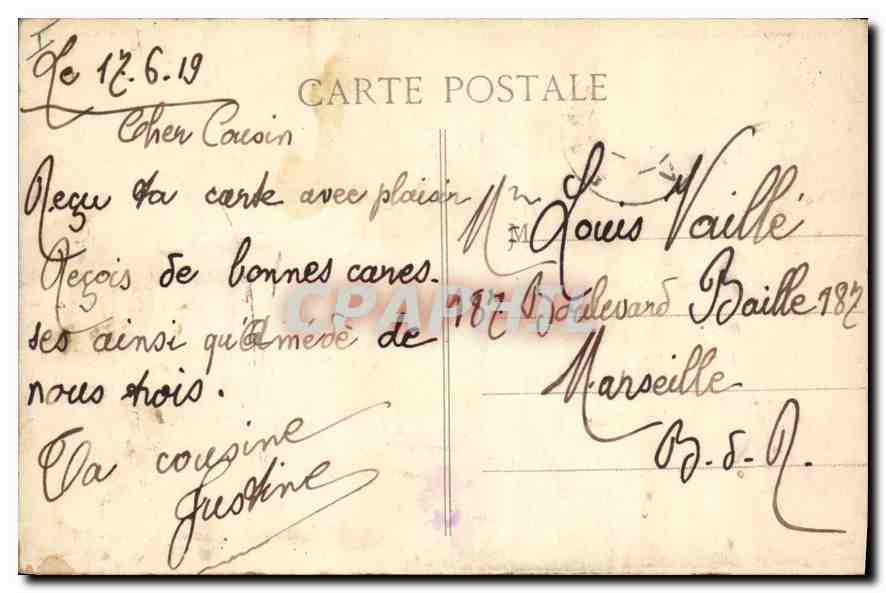 Le 17.6.19
CARTE POSTALE
Cher Cousin
Reçu ta carte avec plaisir
Reçois de bonnes cares-
ses ainsi qu'Amédé de
nous trois.
Ta cousine
Justine
Mr Louis Vaillé
M
187 Boulevard Baille 187
Marseille
B. d. R.
CPAPHIL